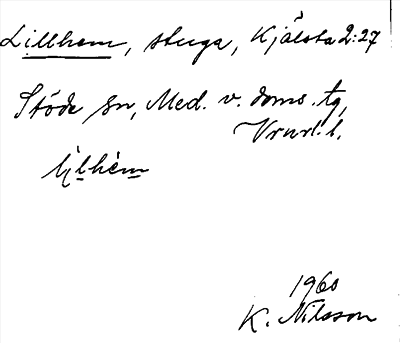 Lillhem, stuga, Kjälsta 2:27
Stöde sn, Med. v. doms. tg,
lilhem
1960
K. Nilsson